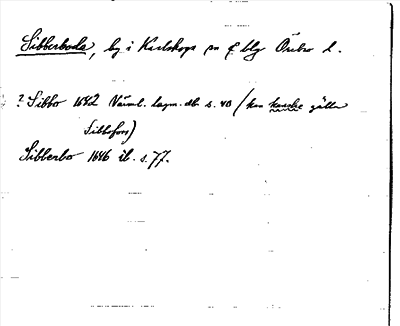 Sibberboda, by i Karlskoga sn o. blg Örebro l.
? Sibbo 1642 Värml. lagm. db. s. 40 (kan kanske gälla
Sibbofors)
Sibberbo 1646 ib. s. 77.